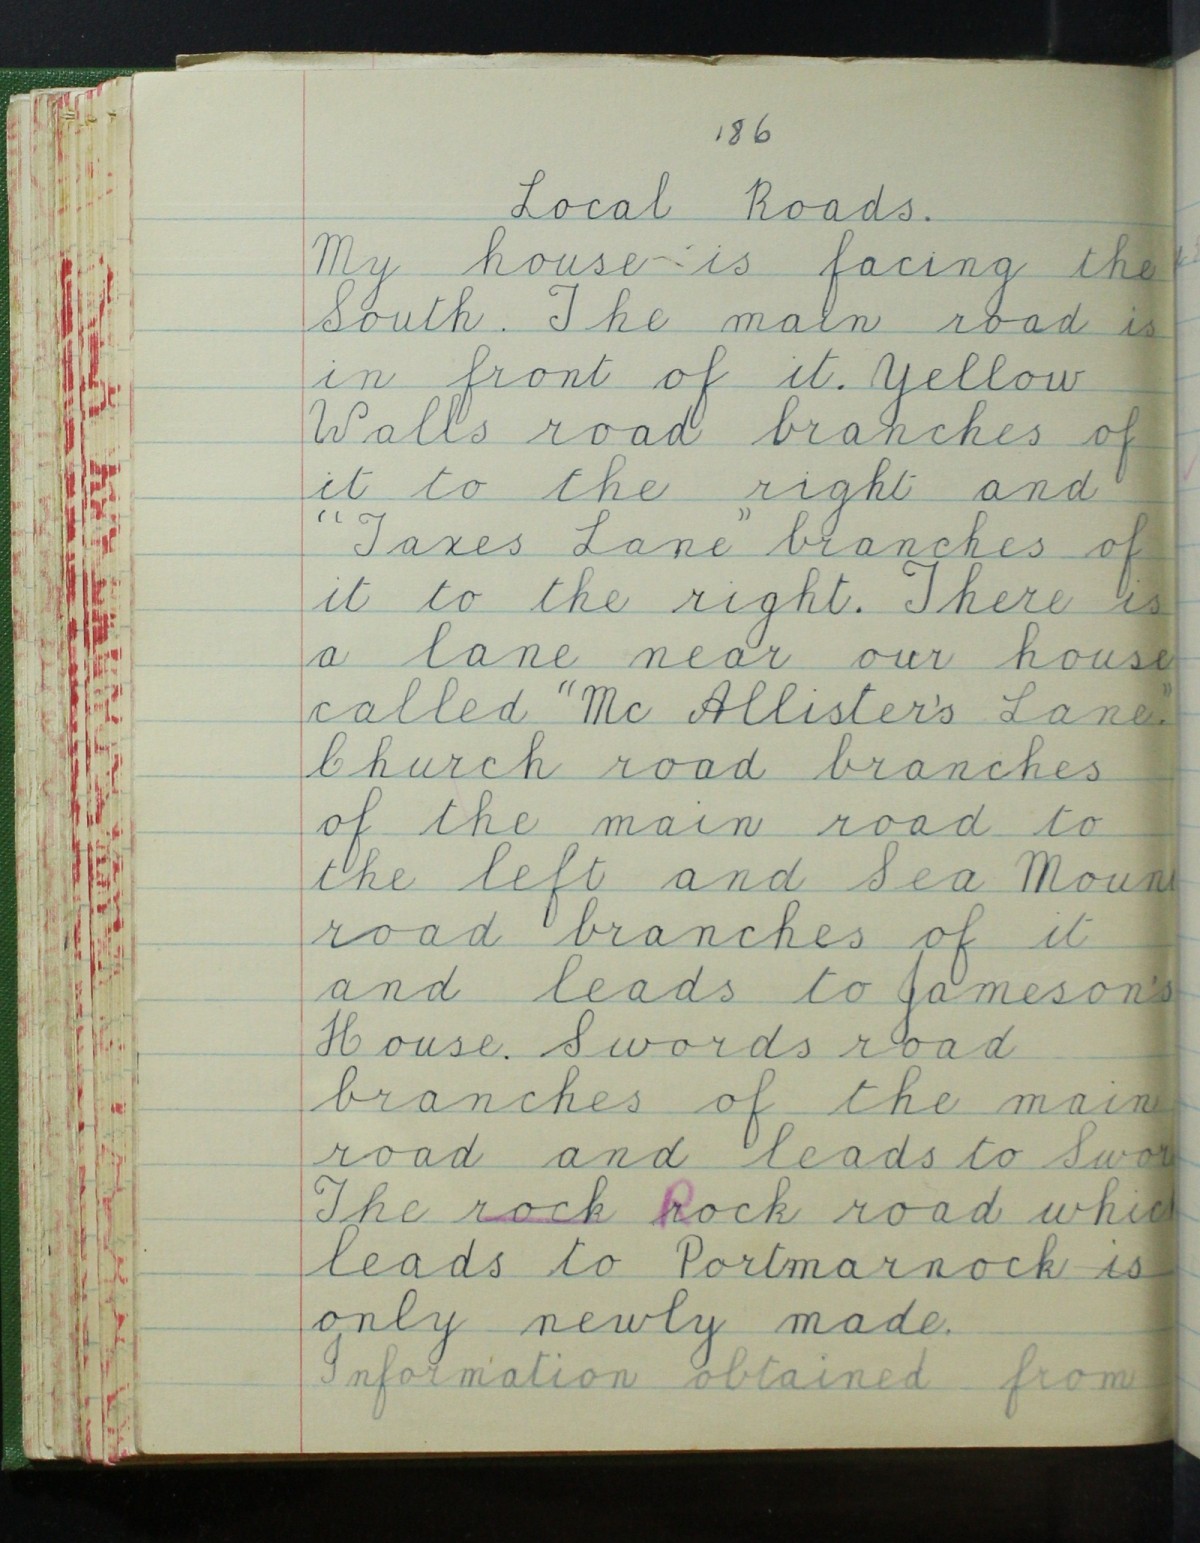 186
Local Roads.
My house is facing the
South. The main road is
in front of it. Yellow
Walls road branches of
it to the right and
"Taxes Lane" branches of
it to the right. There is
a lane near our house
called "Mc Allister's Lane."
Church road branches
of the main road to
the left and Sea Moun
road branches of it
and leads to Jameson's
House. Swords road
branches of the main
road and leads to Swor
The rock Rock road whic
leads to Portmarnock is
only newly made.
Information obtained from